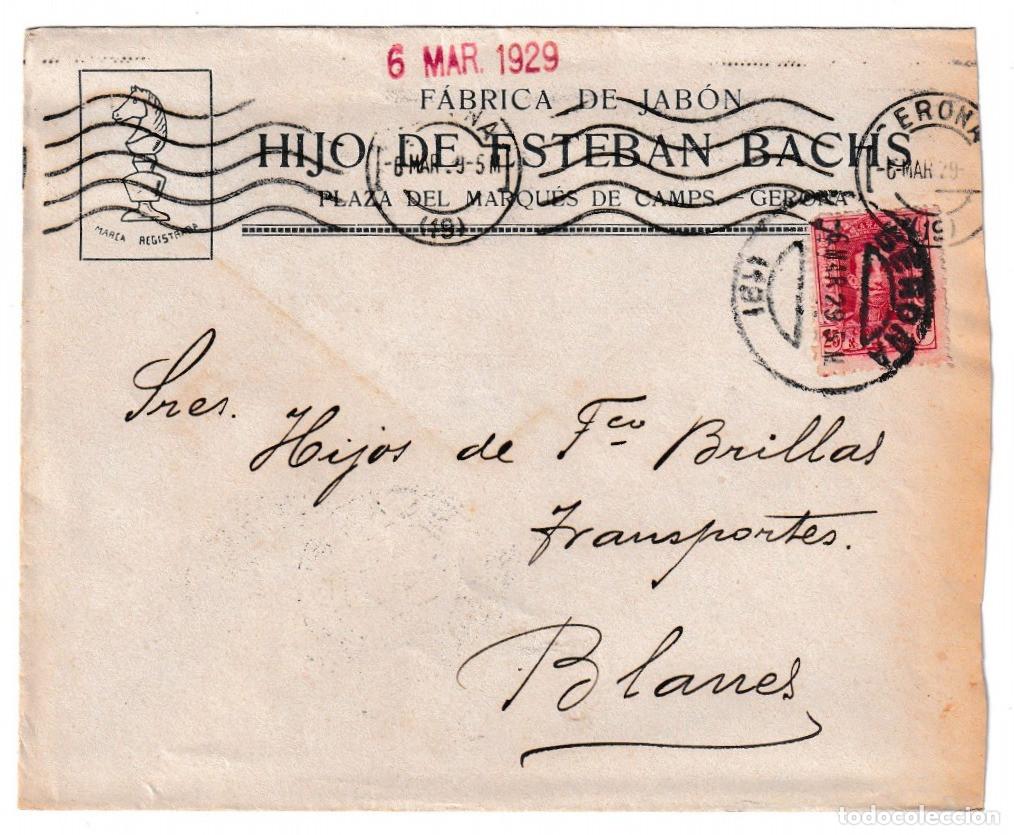 6 MAR. 1929
FÁBRICA DE JABÓN
HIJO DE ESTEBAN BACHS
PLAZA DEL MARQUÉS DE CAMPS. - GERONA
MARCA REGISTRADA
-6 MAR 29-5M
(19)
GERONA
-6-MAR 29-
(19)
GERONA
-6 MAR 29
(18)
25
Sres.
Hijos de Fco Brillas
Transportes.
Blanes
todocoleccion